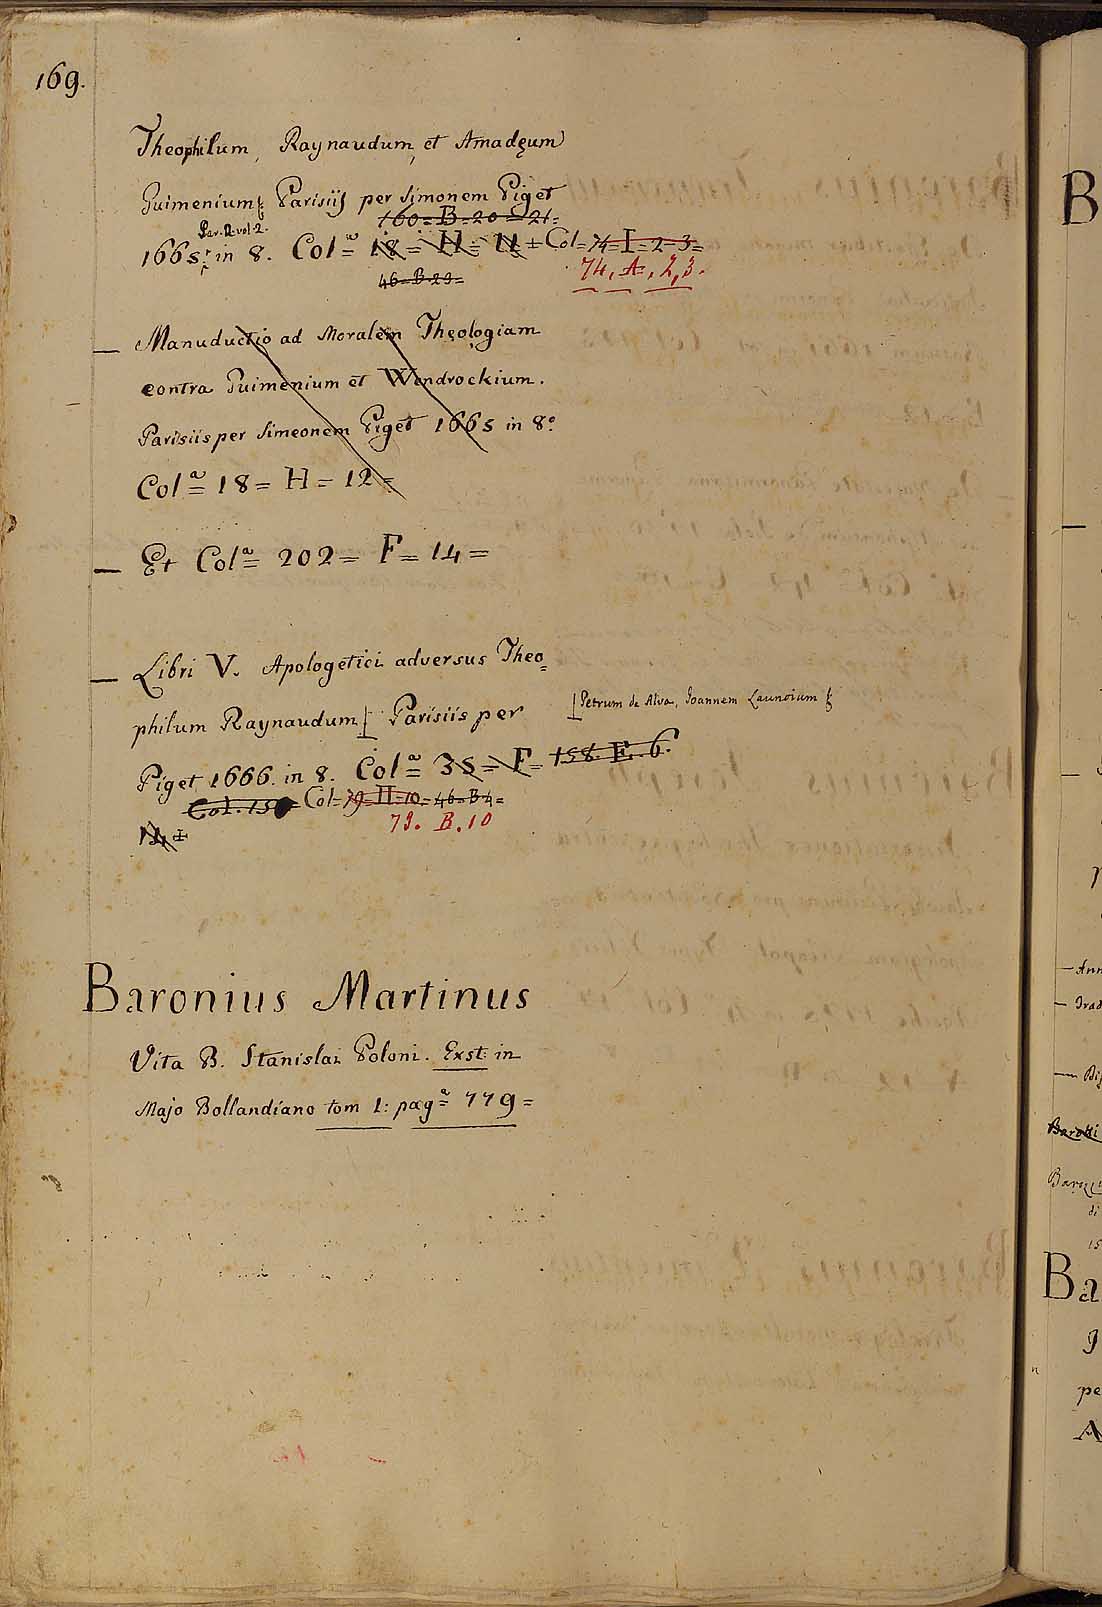 169.
Theophilum, Raynaudum, et Amadęum
Guimenium & Parisiis per Simonem Piget
160 = B = 20 = 21 =
Par. 2. vol. 2.
1665. in 8. Col.ª = 18 = H = 11 = Col = 74 = I = 2 = 3 =
46 = B 23 =
74, A, 2, 3.
— Manuductio ad Moralem Theologiam
contra Guimenium et Wendrockium.
Parisiis per Simeonem Piget 1665 in 8º
Colª = 18 = H = 12 =
— Et Colª = 202 = F = 14 =
— Libri V. Apologetici adversus Theo=
philum Raynaudum Parisiis per
Petrum de Alva, Joannem Launoium &
Piget 1666. in 8. Colª = 35 = F = 158. E. 6.
Col. 150 = Col = 79 = H = 10 = 46 = B 4 =
14 =
79. B. 10
Baronius Martinus
Vita B. Stanislai Poloni. Exst: in
Majo Bollandiano tom 1: pagª = 779 =
B
Ba
pe
A